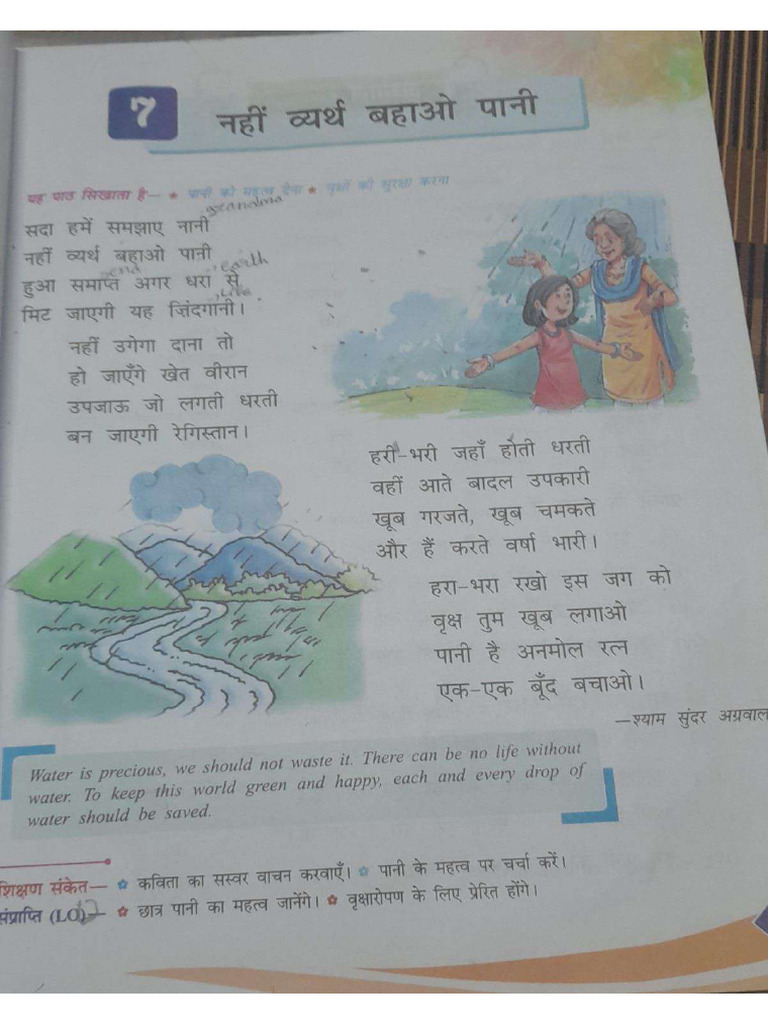 7
नहीं व्यर्थ बहाओ पानी
यह पाठ सिखाता है— ★ पानी को महत्व देना ★ वृक्षों की सुरक्षा करना
grandma
सदा हमें समझाए नानी
नहीं व्यर्थ बहाओ पानी
end earth
हुआ समाप्त अगर धरा से
मिट जाएगी यह ज़िंदगानी।
नहीं उगेगा दाना तो
हो जाएँगे खेत वीरान
उपजाऊ जो लगती धरती
बन जाएगी रेगिस्तान।
हरी-भरी जहाँ होती धरती
वहीं आते बादल उपकारी
खूब गरजते, खूब चमकते
और हैं करते वर्षा भारी।
हरा-भरा रखो इस जग को
वृक्ष तुम खूब लगाओ
पानी है अनमोल रत्न
एक-एक बूँद बचाओ।
—श्याम सुंदर अग्रवाल
Water is precious, we should not waste it. There can be no life without
water. To keep this world green and happy, each and every drop of
water should be saved.
शिक्षण संकेत— ✿ कविता का सस्वर वाचन करवाएँ। ✿ पानी के महत्व पर चर्चा करें।
संप्राप्ति (LO)— ✿ छात्र पानी का महत्व जानेंगे। ✿ वृक्षारोपण के लिए प्रेरित होंगे।